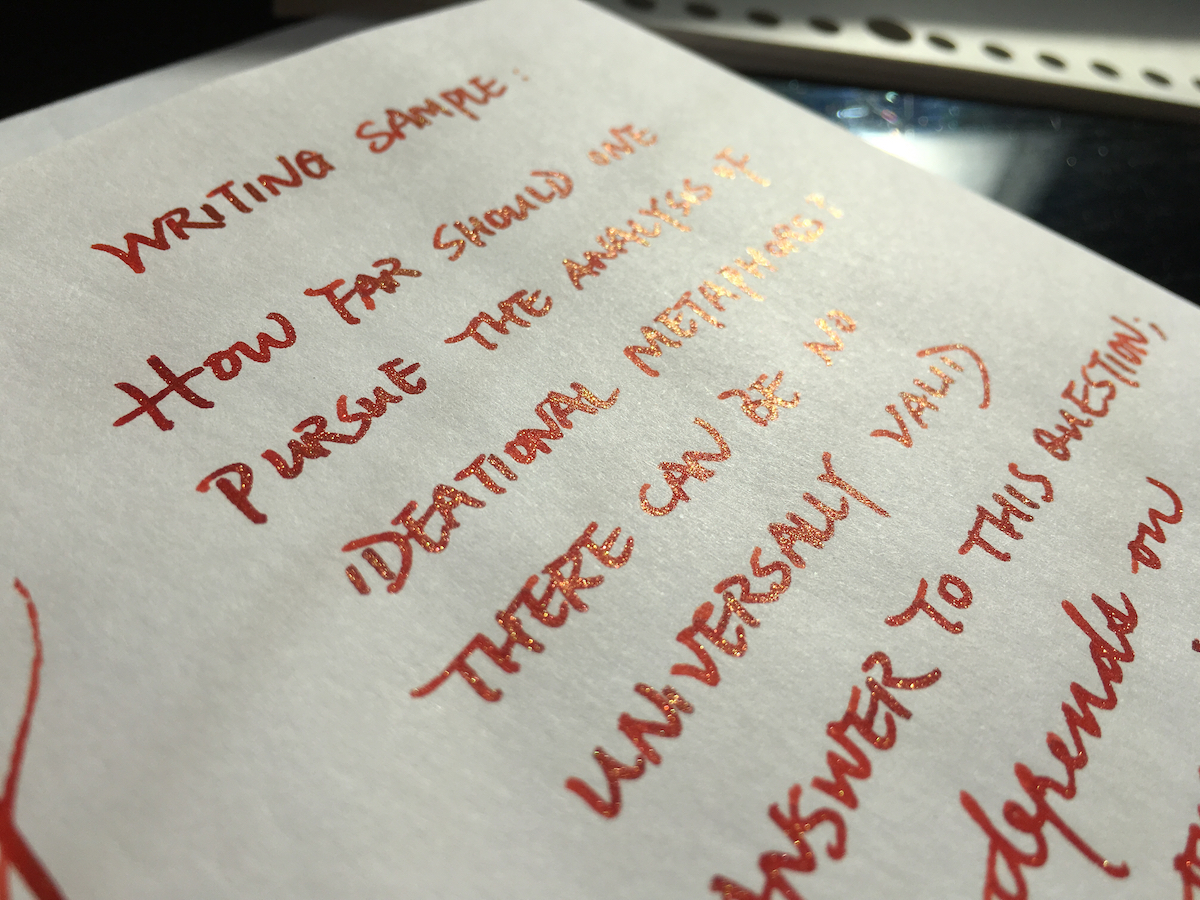 WRITING SAMPLE:
HOW FAR SHOULD ONE
PURSUE THE ANALYSIS OF
IDEATIONAL METAPHORS?
THERE CAN BE NO
UNIVERSALLY VALID
ANSWER TO THIS QUESTION;
depends on